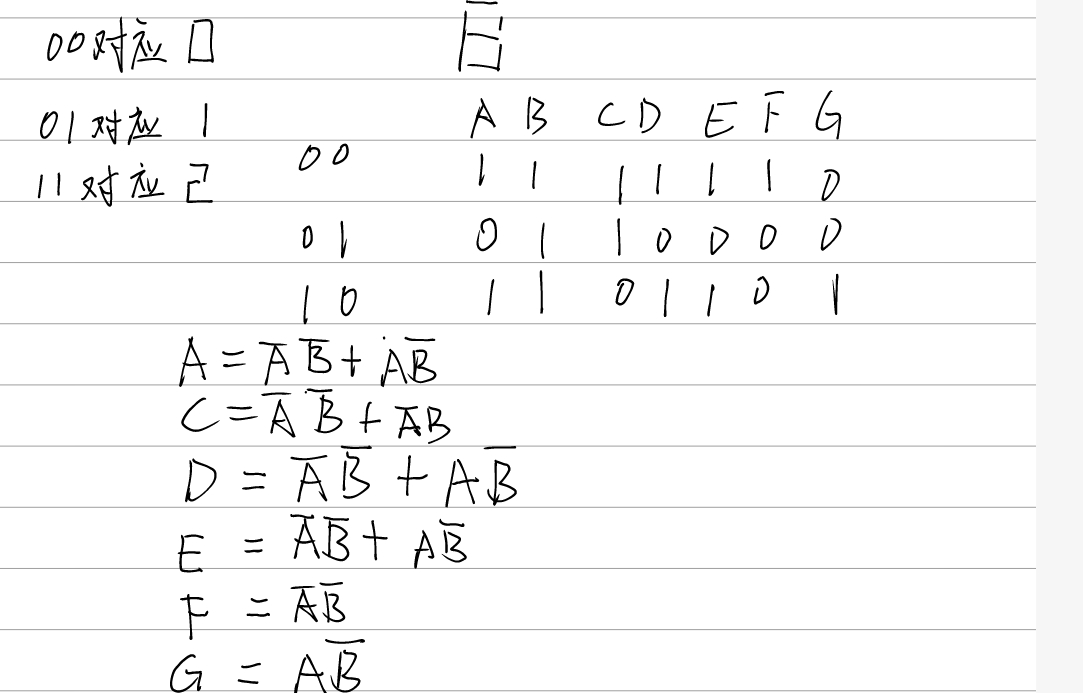 00对应 0
01对应 1
11对应 2
A B C D E F G
00 1 1 1 1 1 1 0
01 0 1 1 0 0 0 0
10 1 1 0 1 1 0 1
A = A̅ B̅ + A B̅
C = A̅ B̅ + A̅ B
D = A̅ B̅ + A B̅
E = A̅ B̅ + A B̅
F = A̅ B̅
G = A B̅